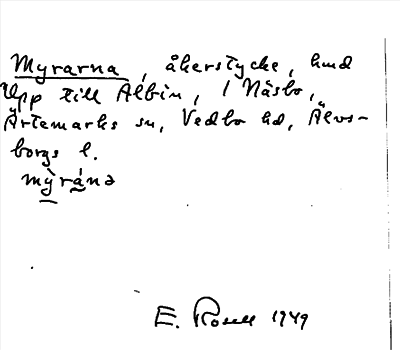 Myrarna, åkerstycke, hmd
Upp till Albin, 1 Näsbo,
Ärtemarks sn, Vedbo hd, Älvs-
borgs l.
mỳrána
E. Rosell 1949